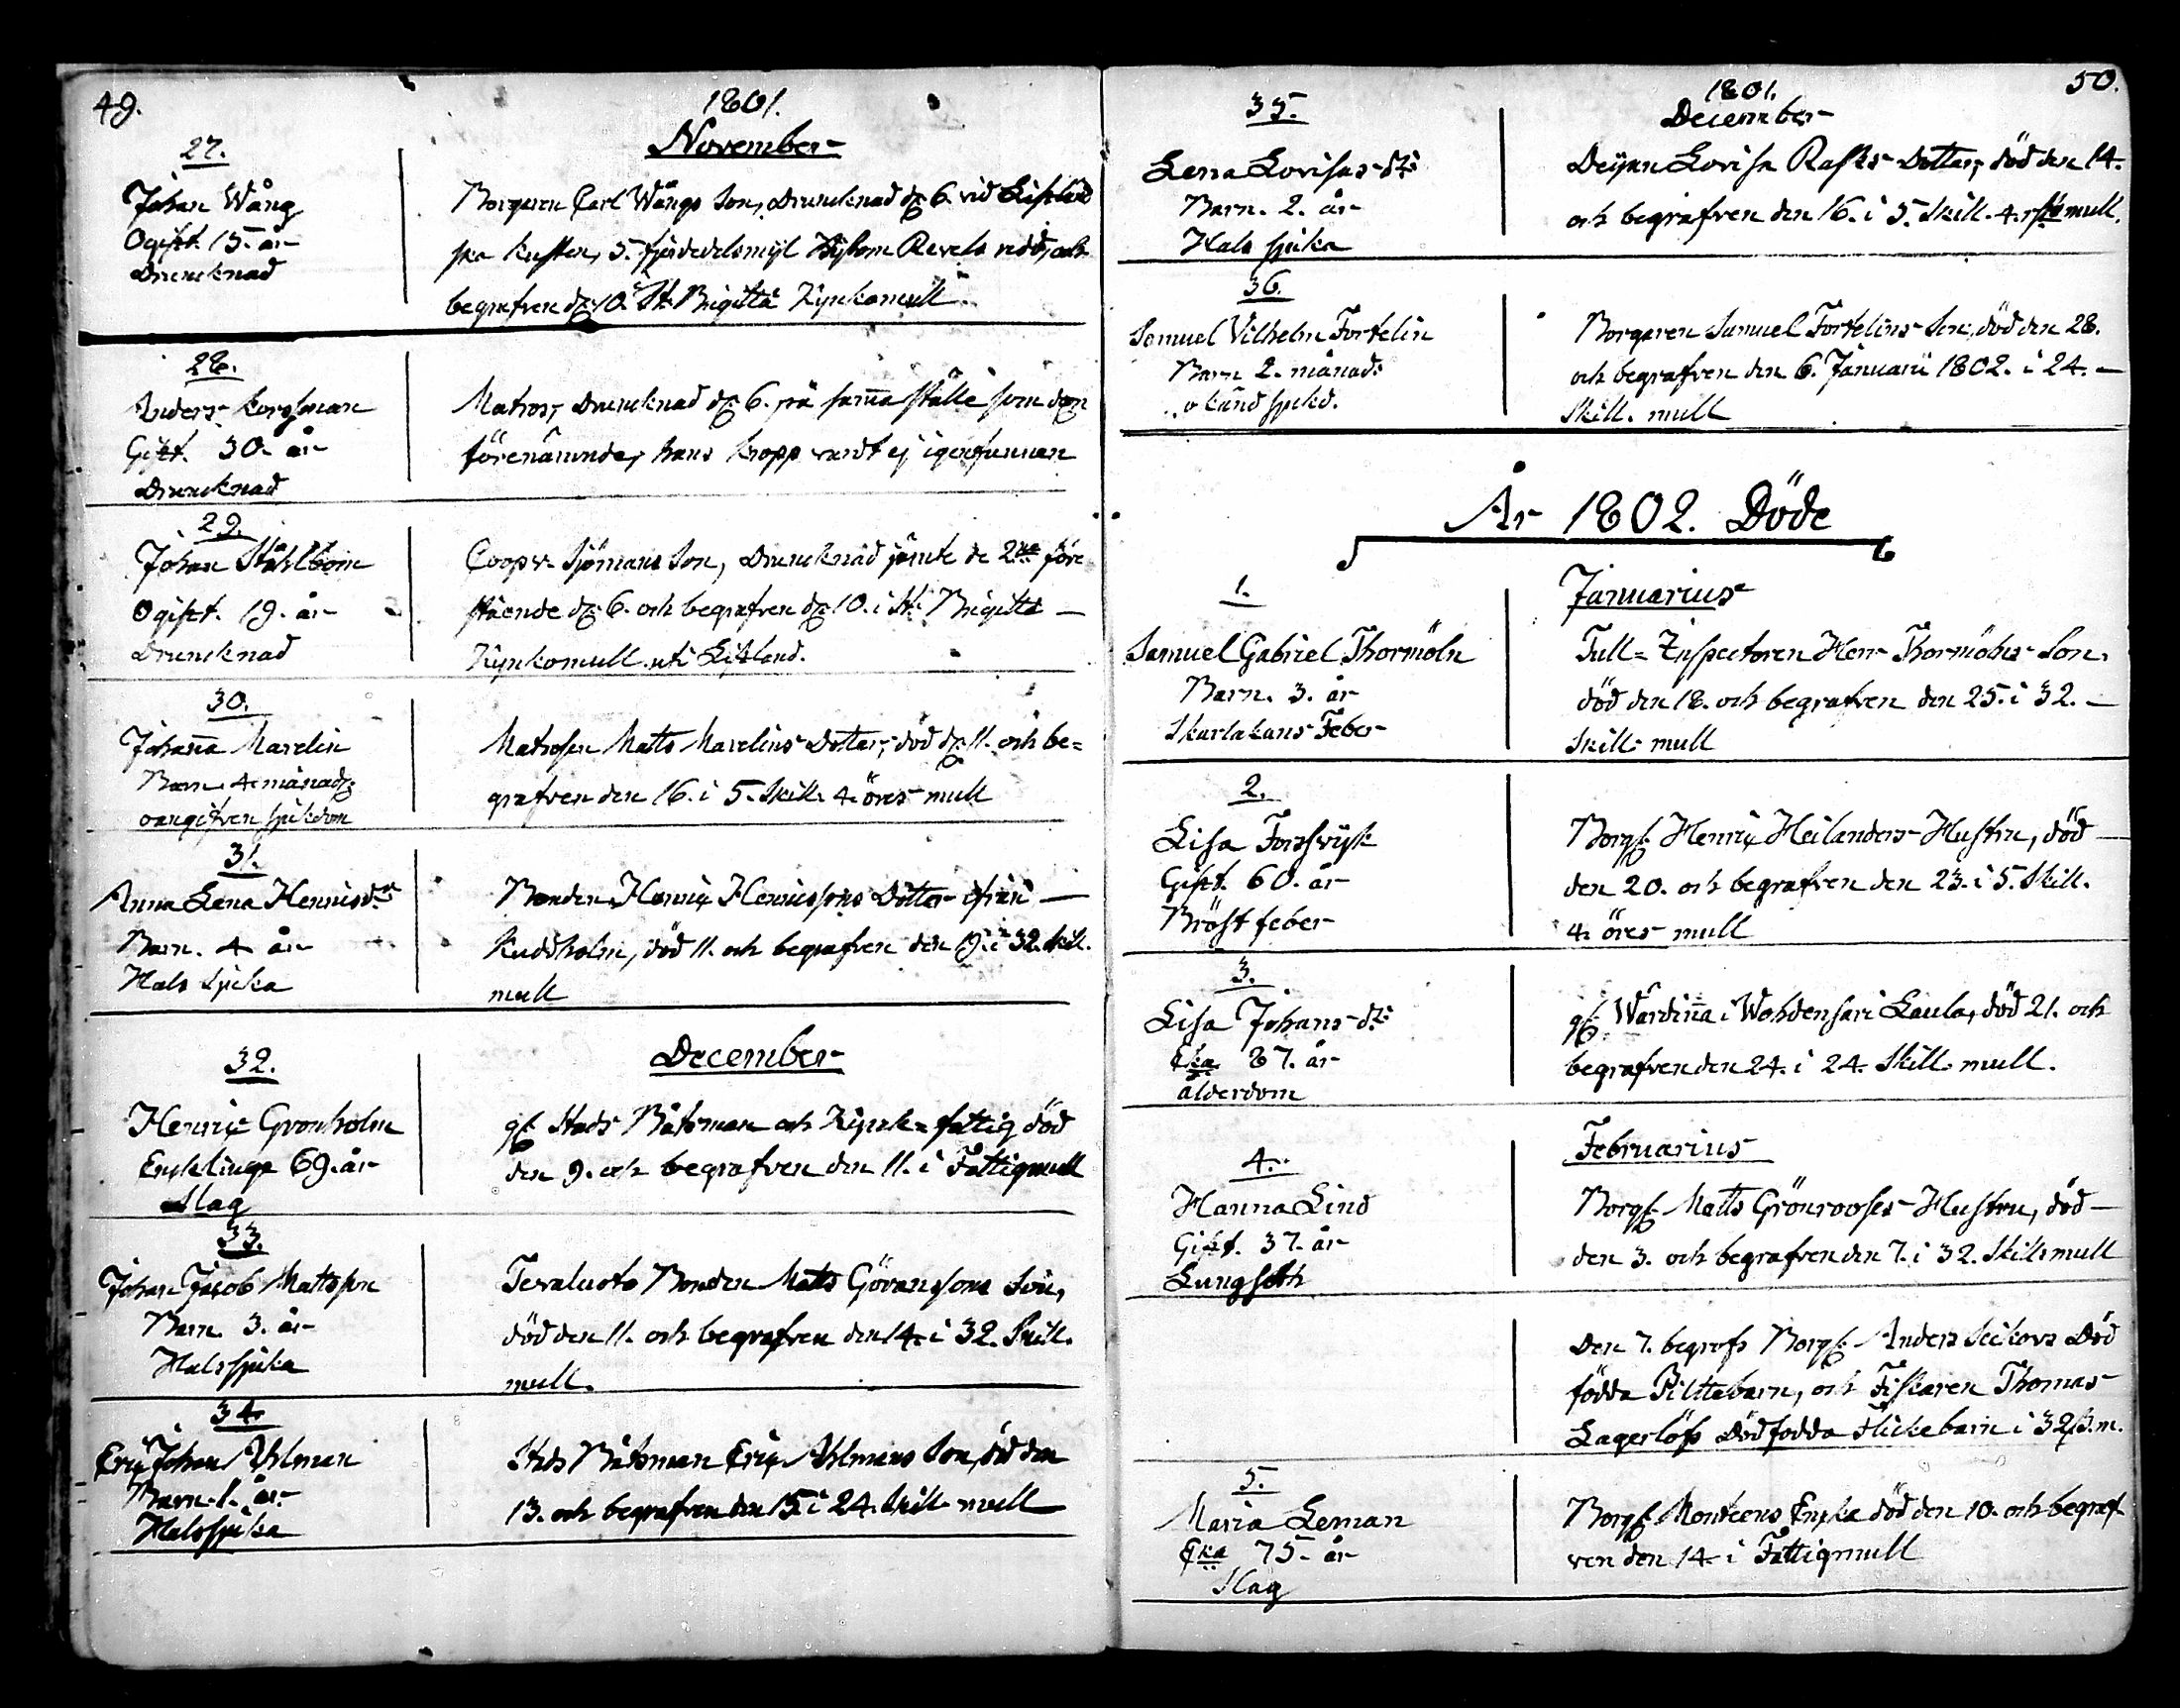 49.
1801.
November
27.
Johan Wång
Ogift. 15. år
Druncknad
Borgaren Carl Wångs Son, Druncknad d. 6. vid
ska kusten, 5. fjerdedelsmijl Revels redd, och
begrafven d. 10. i St. Brigitta Kyrkomull.
28.
Anders Korsman
Gift. 30. år
Druncknad
Matros, Druncknad d. 6. på sama ställe som den
förenämnde, hans kropp vardt ej igenfunnen
29.
Johan Ståhlbom
Ogift. 19. år
Druncknad
Sjömans Son, Druncknad jämte de 2ne före
stående d. 6. och begrafven d. 10. i St. Brigitta —
Kyrkomull uti Lifland.
30.
Johana Marelin
Barn. 4. månad
oangifven sjukdom
Matrosen Matts Marelins Dotter, död d. 11. och be=
grafven den 16. i 5. Skill. 4. öres mull
31.
Anna Lena Henricsdr
Barn. 4 år
Hals Sjuka
Bonden Henric Henricssons Dotter ifrån —
Kuddholm, död 11. och begrafven den 19. i 32. Skill.
mull
December
32.
Henric Gronholm
Enklinge 69. år
Slag
gl. Stads Båtsman och Kyrk=fattig död
den 9. och begrafven den 11. i Fattigmull
33.
Johan Jacob Mattsson
Barn. 3. år
Halssjuka
Tervaluoto Bonden Matts Göranssons Son,
död den 11. och begrafven den 14. i 32. Skill.
mull.
34.
Eric Johan Ahlman
Barn. 1. år
Halssjuka
Stads Båtsman Eric Ahlmans Son, död den
13. och begrafven den 15. i 24. Skill. mull
50.
1801.
December
35.
Lena Lovisas dr.
Barn. 2. år
Hals sjuka
Deijan Lovisa Rasks Dotter, död den 14.
och begrafven den 16. i 5. Skill. 4. mull.
36.
Samuel Vilhelm Fortelin
Barn 2. månad.
okänd sjukd.
Borgaren Samuel Fortelins Son, död den 28.
och begrafven den 6. Januarii 1802. i 24. —
Skill. mull
År 1802. Döde
Januarius
1.
Samuel Gabriel Thormöln
Barn. 3. år
Skarlakans Feber
Tull=Inspectoren Herr Thormölns Son,
död den 18. och begrafven den 25. i 32. —
Skill. mull
2.
Lisa Forsvijk
Gift. 60. år
Bröst feber
Borg. Henric Heilanders Hustru, död —
den 20. och begrafven den 23. i 5. Skill.
4. öres mull
3.
Lisa Johans dr.
Eka 87. år
ålderdom
gl. Wärdina i Wohdensari Laula, död 21. och
begrafven den 24. i 24. Skill. mull.
Februarius
4.
Hanna Lind
Gift. 37. år
Lungsoth
Borg. Matts Grönrooses Hustru, död —
den 3. och begrafven den 7. i 32. Skill. mull
Den 7. begrofs Borg. Anders Död
födda Piltebarn, och Fiskaren Thomas
Lagerlöfs Dödfödda Flickebarn i 32. ß. m.
5.
Maria Leman
Eka 75. år
Slag
Borg. Monteens Enka död den 10. och begraf
ven den 14. i Fattigmull